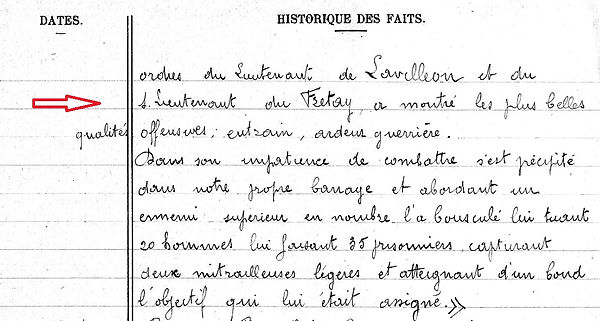 DATES.
HISTORIQUE DES FAITS.
ordres du Lieutenant de Lavilleon et du
S. Lieutenant du Fretay, a montré les plus belles
qualités offensives; entrain, ardeur guerrière.
Dans son impatience de combattre s'est précipité
dans notre propre barrage et abordant un
ennemi superieur en nombre l'a bousculé lui tuant
20 hommes lui faisant 35 prisonniers, capturant
deux mitrailleuses légères et atteignant d'un bond
l'objectif qui lui était assigné.»